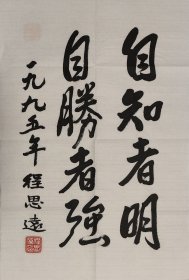 自知者明
自勝者強
一九九五年 程思遠